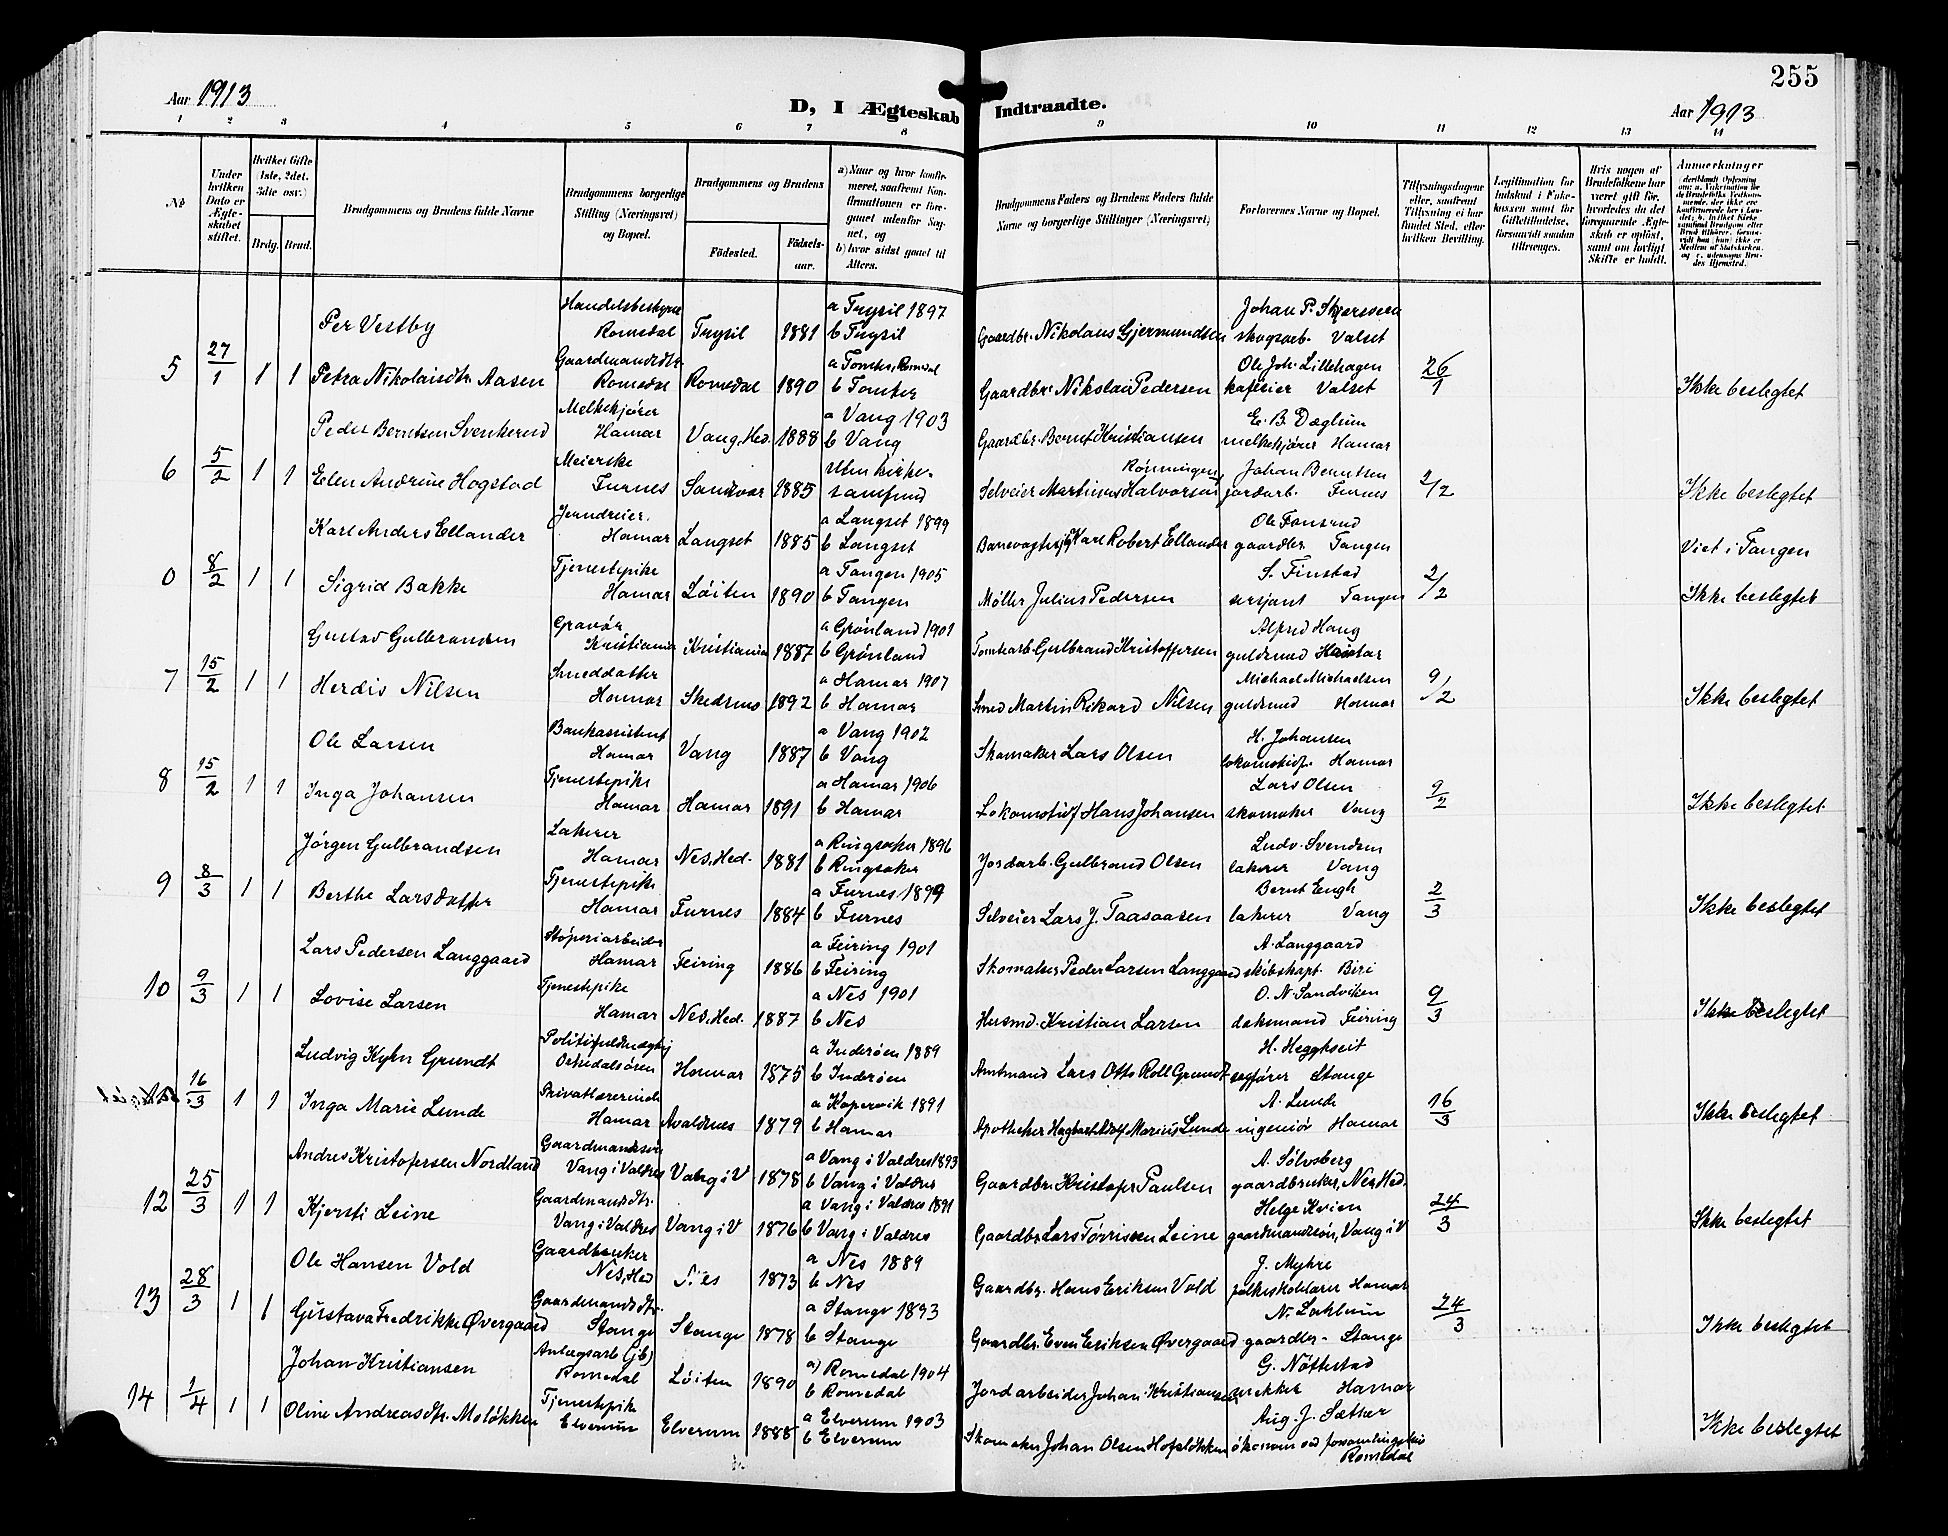 255
Aar 1913
D, I Ægteskab Indtraadte.
Aar 1913
1 2 3 4 5 6 7 8 9 10 11 12 13 14
No
Under hvilken Dato er Ægteskabet stiftet.
Hvilket Gifte (1ste, 2det, 3die osv.)
Brdg. Brud.
Brudgommens og Brudens fulde Navne
Brudgommens borgerlige Stilling (Næringsvei) og Bopæl.
Brudgommens og Brudens
Fødested.
Fødselsaar.
a) Naar og hvor konfirmeret, saafremt Konfirmationen er foregaaet udenfor Sognet, og
b) hvor sidst gaaet til Alters.
Brudgommens Faders og Brudens Faders fulde Navne og borgerlige Stillinger (Næringsvei)
Forlovernes Navne og Bopæl.
Tillysningsdagene eller, saafremt Tillysning ei har fundet Sted, efter hvilken Bevilling.
Legitimation for Indskud i Enkekassen samt for Giftetilladelse, forsaavidt saadan tiltrænges.
Hvis nogen af Brudefolkene har været gift før, hvorledes da det foregaaende Ægteskab er opløst, samt om lovligt Skifte er holdt.
Anmerkninger
Per Vestby Handelsbestyrer Romedal Trysil 1881 a Trysil 1897 b Trysil Gaardbr. Nikolaus Gjermundsen Johan P. skogsarb. Valset
5 27/1 1 1 Petra Nikolaisdtr. Aasen Gaardmandsdtr. Romedal Romedal 1890 a Tomter, Romedal b Tomter Gaardbr. Nikolai Pedersen Ole Joh. Lillehagen Valset 26/1 Ikke beslegtet
Peder Berntsen Svenkerud Melkekjører Hamar Vang, Hed. 1888 a Vang 1903 b Vang Gaardbr. Bernt Kristiansen E. B. Dæglum melkekjører Hamar
6 5/2 1 1 Elen Andrine Hogstad Meierske Furnes Sandvær 1885 Uten kirkesamfund Selveier Martinus Halvorsen Rønningen Johan Berntsen jordarb. Furnes 2/2 Ikke beslegtet
Karl Anders Ellander Hamar Langset 1885 a Langset 1899 b Langset Banevogter Karl Robert Ellander Ole gaardbr. Tangen Viet i Tangen
0 8/2 1 1 Sigrid Bakke Tjenestepike Hamar Løiten 1890 a Tangen 1905 b Tangen Møller Julius Pedersen S. Finstad sersjant Tangen 2/2 Ikke beslegtet
Gustav Gulbrandsen Gravør Kristiania Kristiania 1887 a Grønland 1901 b Grønland Tomtearb. Gulbrand Kristoffersen Alfred Haug guldsmed Hamar
7 15/2 1 1 Herdis Nilsen Smeddatter Hamar Skedsmo 1892 a Hamar 1907 b Hamar Smed Martin Rikard Nilsen Michael Michaelsen guldsmed Hamar 9/2 Ikke beslegtet
Ole Larsen Bankassistent Hamar Vang 1887 a Vang 1902 b Vang Skomaker Lars Olsen H. Johansen lokomotivf. Hamar
8 15/2 1 1 Inga Johansen Tjenestepike Hamar Hamar 1891 a Hamar 1906 b Hamar Lokomotivf Hans Johansen Lars Olsen skomaker Vang 9/2 Ikke beslegtet
Jørgen Gulbrandsen Lakerer Hamar Nes, Hed. 1881 a Ringsaker 1896 b Ringsaker Jordarb. Gulbrand Olsen Ludv. Svendsen lakerer Vang
9 8/3 1 1 Berthe Larsdatter Tjenestepike Hamar Furnes 1884 a Furnes 1899 b Furnes Selveier Lars J. Taasaasen Bernt Engh lakerer Vang 2/3 Ikke beslegtet
Lars Pedersen Langgaard Støperiarbeider Hamar Feiring 1886 a Feiring 1901 b Feiring Skomaker Peder Larsen Langgaard A. Langgaard skibskapt. Biri
10 9/3 1 1 Lovise Larsen Tjenestepike Hamar Nes, Hed. 1887 a Nes 1901 b Nes Husmd. Kristian Larsen O. N. Sandviken Feiring 9/3 Ikke beslegtet
Ludvig Kyhn Grundt Politifuldmægtig Orkedalsøren Hamar 1875 a Inderøen 1889 b Inderøen Amtmand Lars Otto Roll Grundt H. sagfører Stange
16/3 1 1 Inga Marie Lunde Privatlærerinde Hamar Avaldsnes 1879 a Kopervik 1891 b Hamar Apotheker Hagbart Adolf Marius Lunde A. Lunde ingeniør Hamar 16/3 Ikke beslegtet
Andres Kristofersen Nordland Gaardmandssøn Vang i Valdres Vang i V 1878 a Vang i Valdres 1893 b Vang i Valdres Gaardbr. Kristofer Paulsen A. Sølvsberg gaardbruker, Nes Hed.
12 25/3 1 1 Kjersti Leine Gaardmandsdtr. Vang i Valdres Vang i V 1876 a Vang i Valdres 1891 b Vang i Valdres Gaardbr. Lars Tørrissen Leine Helge Kvien gaardmandssøn, Vang i V 24/3 Ikke beslegtet
Ole Hansen Vold Gaardbruker Nes, Hed Nes 1873 a Nes 1889 b Nes Gaardbr. Hans Eriksen Vold J. Myhre Hamar
13 28/3 1 1 Gustava Fredrikke Øvergaard Gaardmandsdtr. Stange Stange 1878 a Stange 1893 b Stange Gaardbr. Even Eriksen Øvergaard N. gaardbr. Stange 24/3 Ikke beslegtet
Johan Kristiansen Anlægsarb (jb) Romedal Løiten 1890 a) Romedal 1904 b Romedal Jordarbeider Johan Kristiansen G. Nøttestad Hamar
14 1/4 1 1 Oline Andreasdtr. Moløkken Tjenestepik Elverum Elverum 1888 a Elverum 1903 b Elverum Skomaker Johan Olsen Hofsløkken Aug. J. Sæther økonom ved Romedal Ikke beslegtet